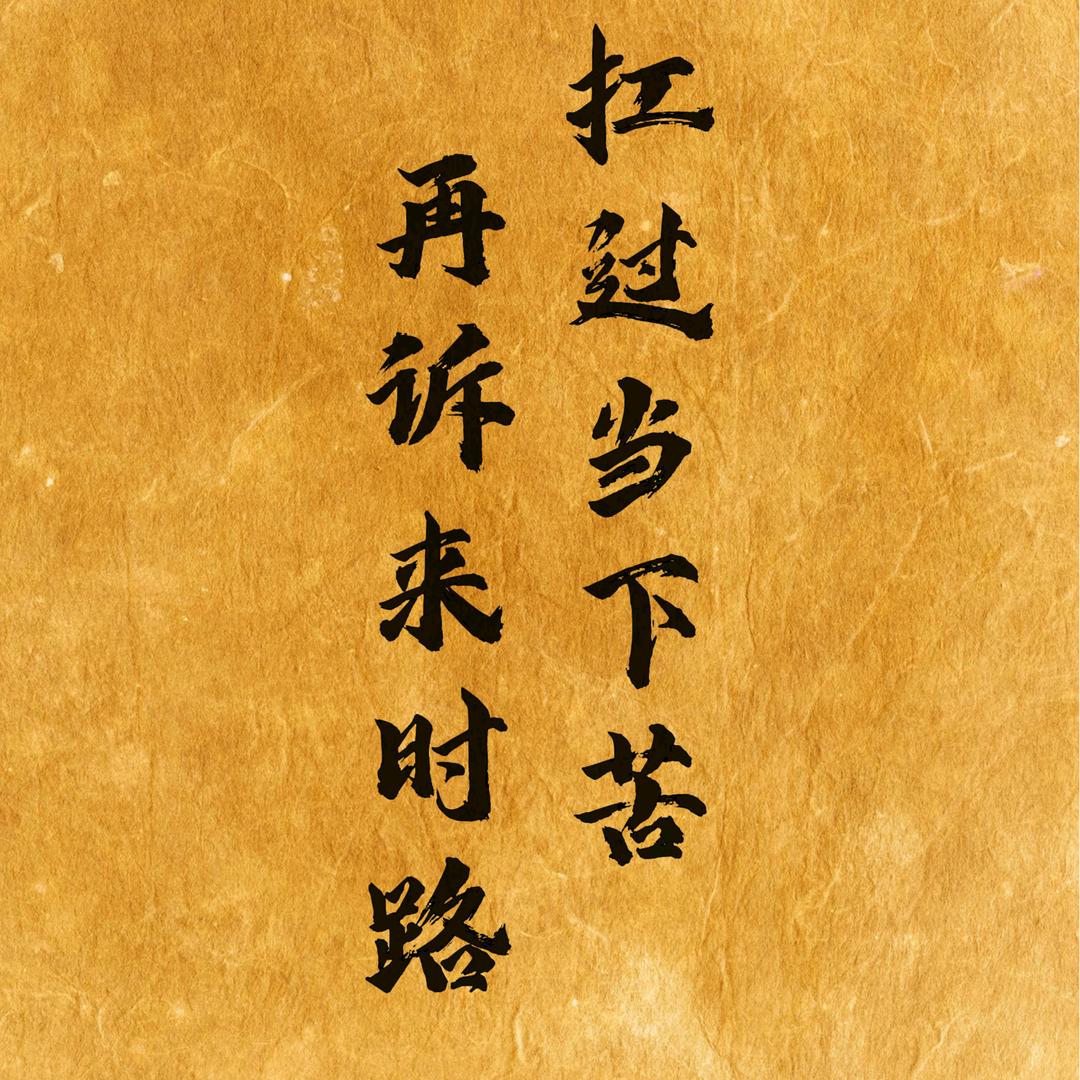 扛过当下苦
再诉来时路